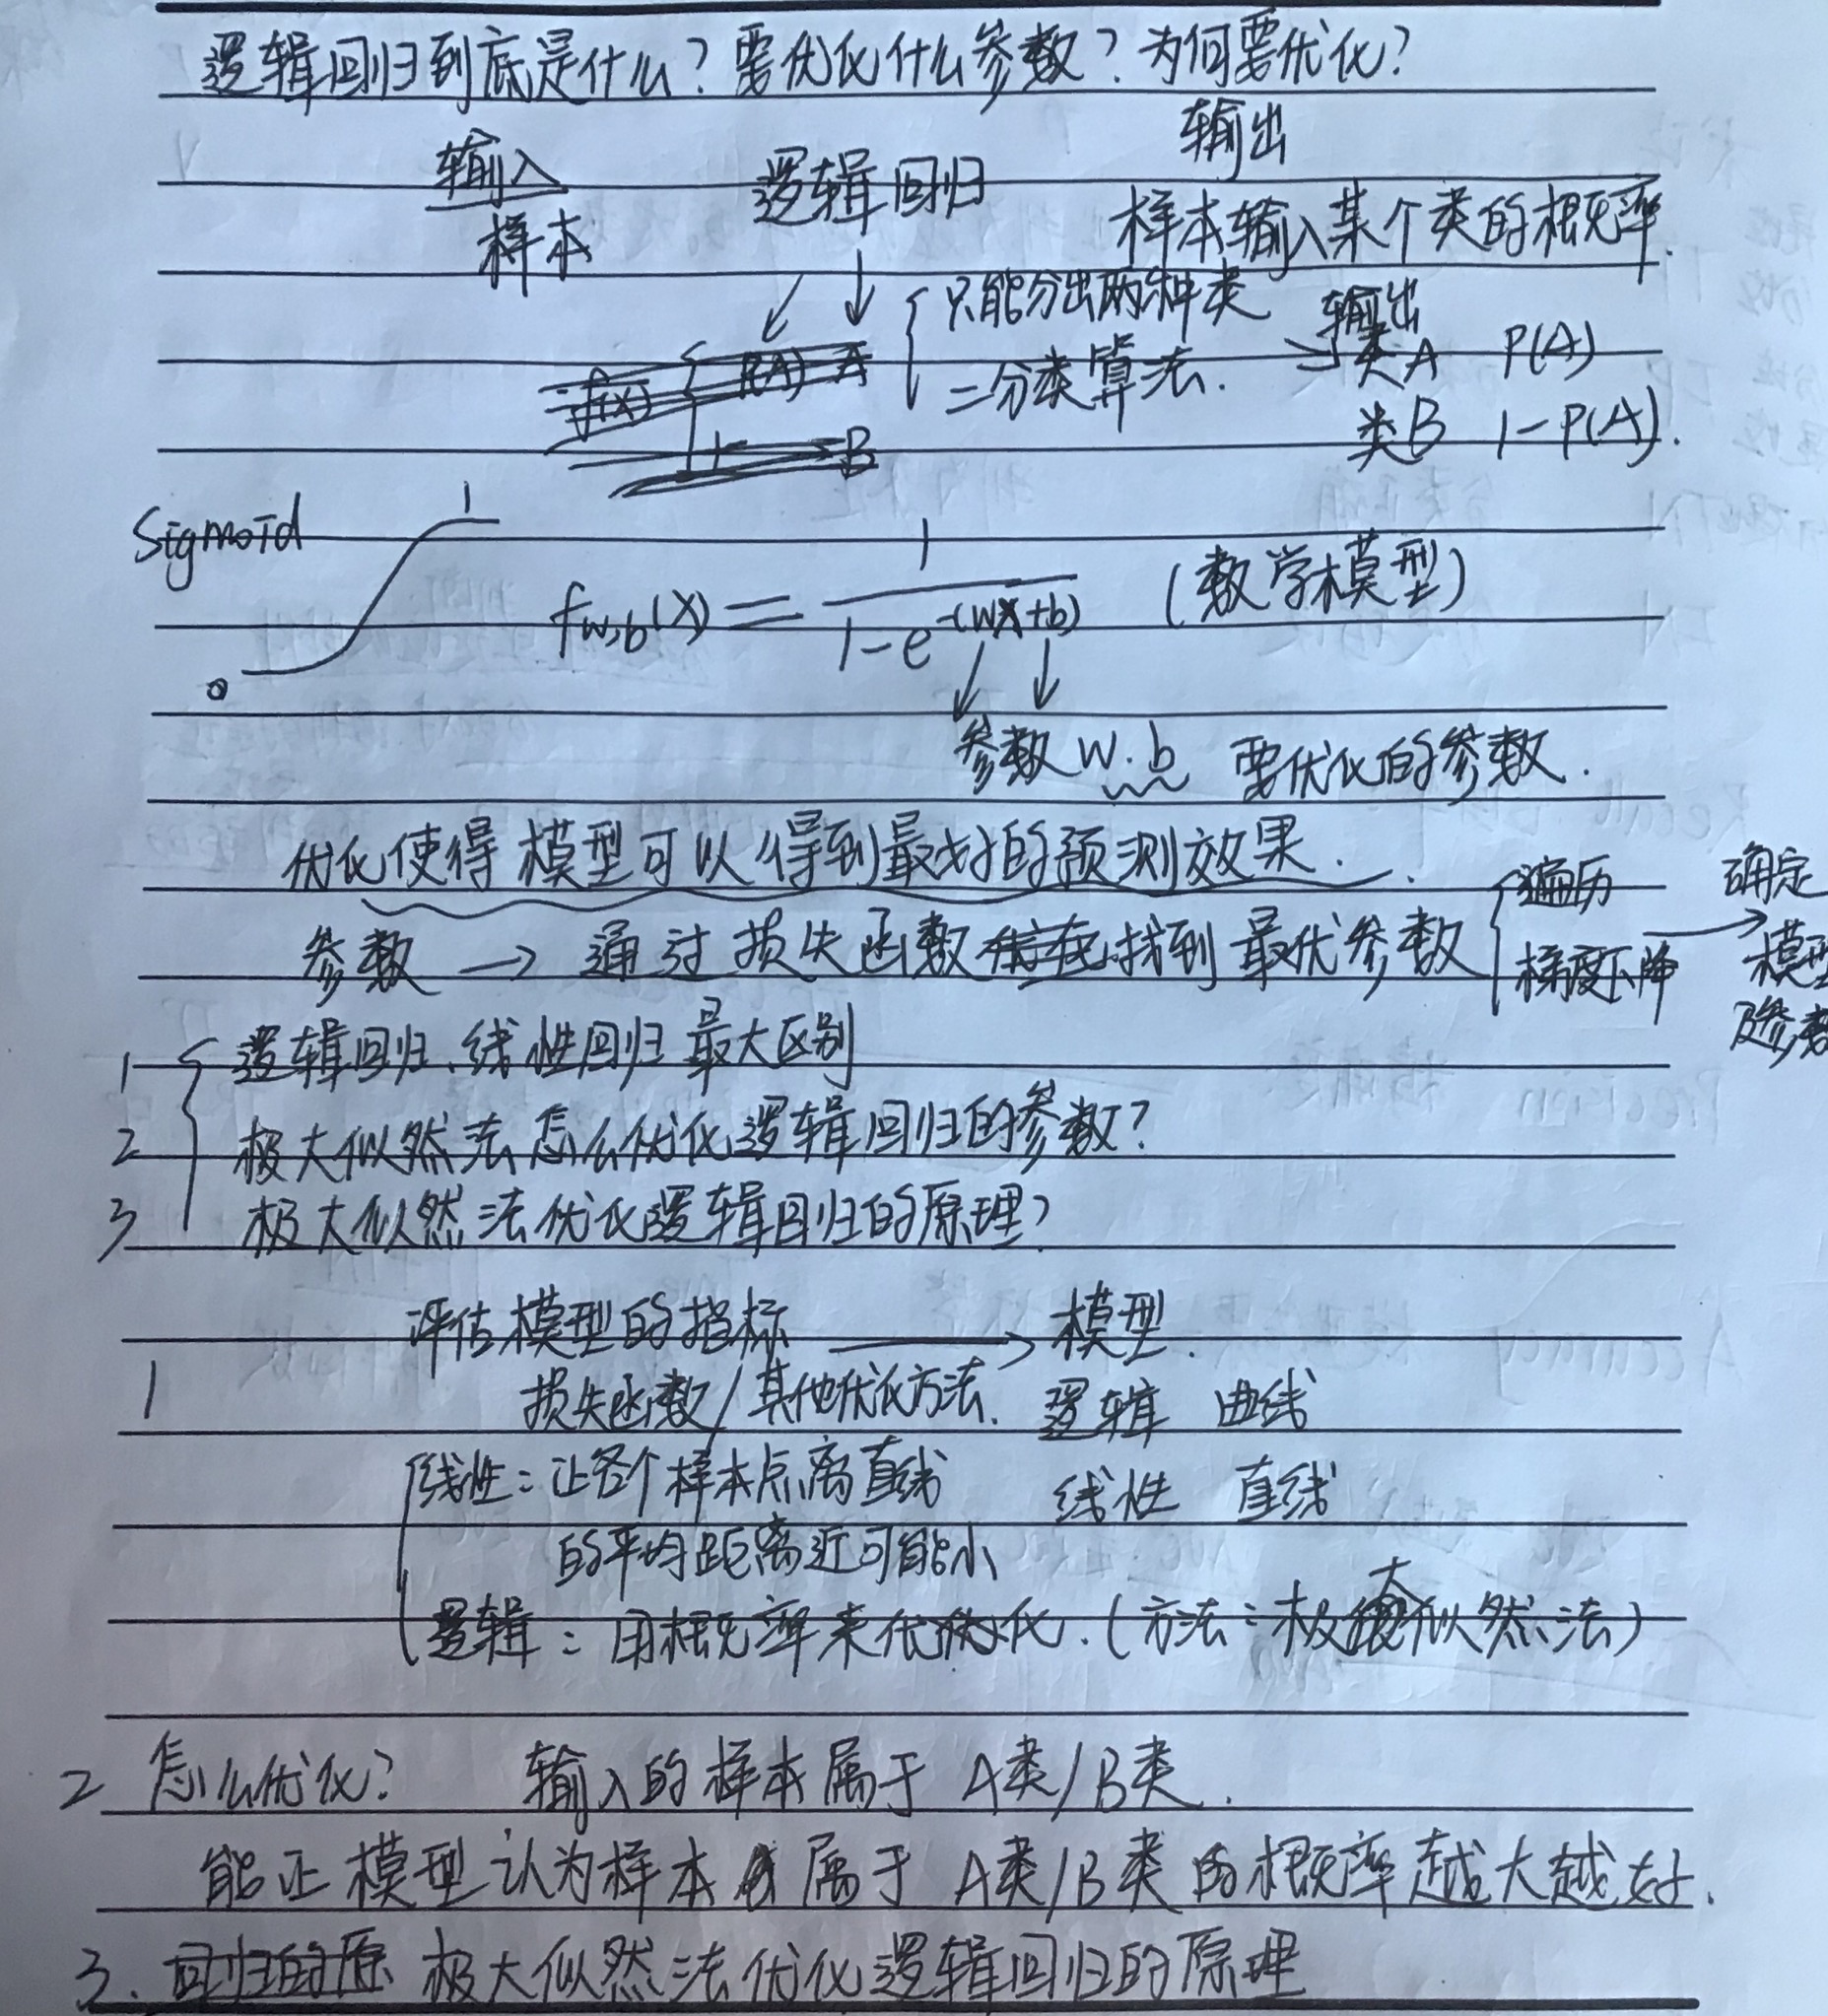 逻辑回归到底是什么？要优化什么参数？为何要优化？
输入 逻辑回归 输出
样本 样本输入某个类的概率.
只能分出两种类 输出
f(x) P(A) A 二分类算法. → 类A P(A)
B 类B 1-P(A).
Sigmoid 1
0
f w,b (x) = 1 / 1-e^-(wx+b) (数学模型)
参数 w.b 要优化的参数.
优化使得模型可以得到最好的预测效果.
参数 → 通过损失函数 找到最优参数 { 遍历 梯度下降 → 确定模型及参数
1 逻辑回归、线性回归最大区别
2 极大似然法怎么优化逻辑回归的参数？
3 极大似然法优化逻辑回归的原理？
评估模型的指标 → 模型.
1 损失函数/其他优化方法. 逻辑 曲线
线性：让各个样本点离直线 线性 直线
的平均距离近可能小
逻辑：用概率来优化.(方法：极大似然法)
2 怎么优化？ 输入的样本属于 A类/B类.
能正模型认为样本属于 A类/B类的概率越大越好.
3. 回归的原 极大似然法优化逻辑回归的原理